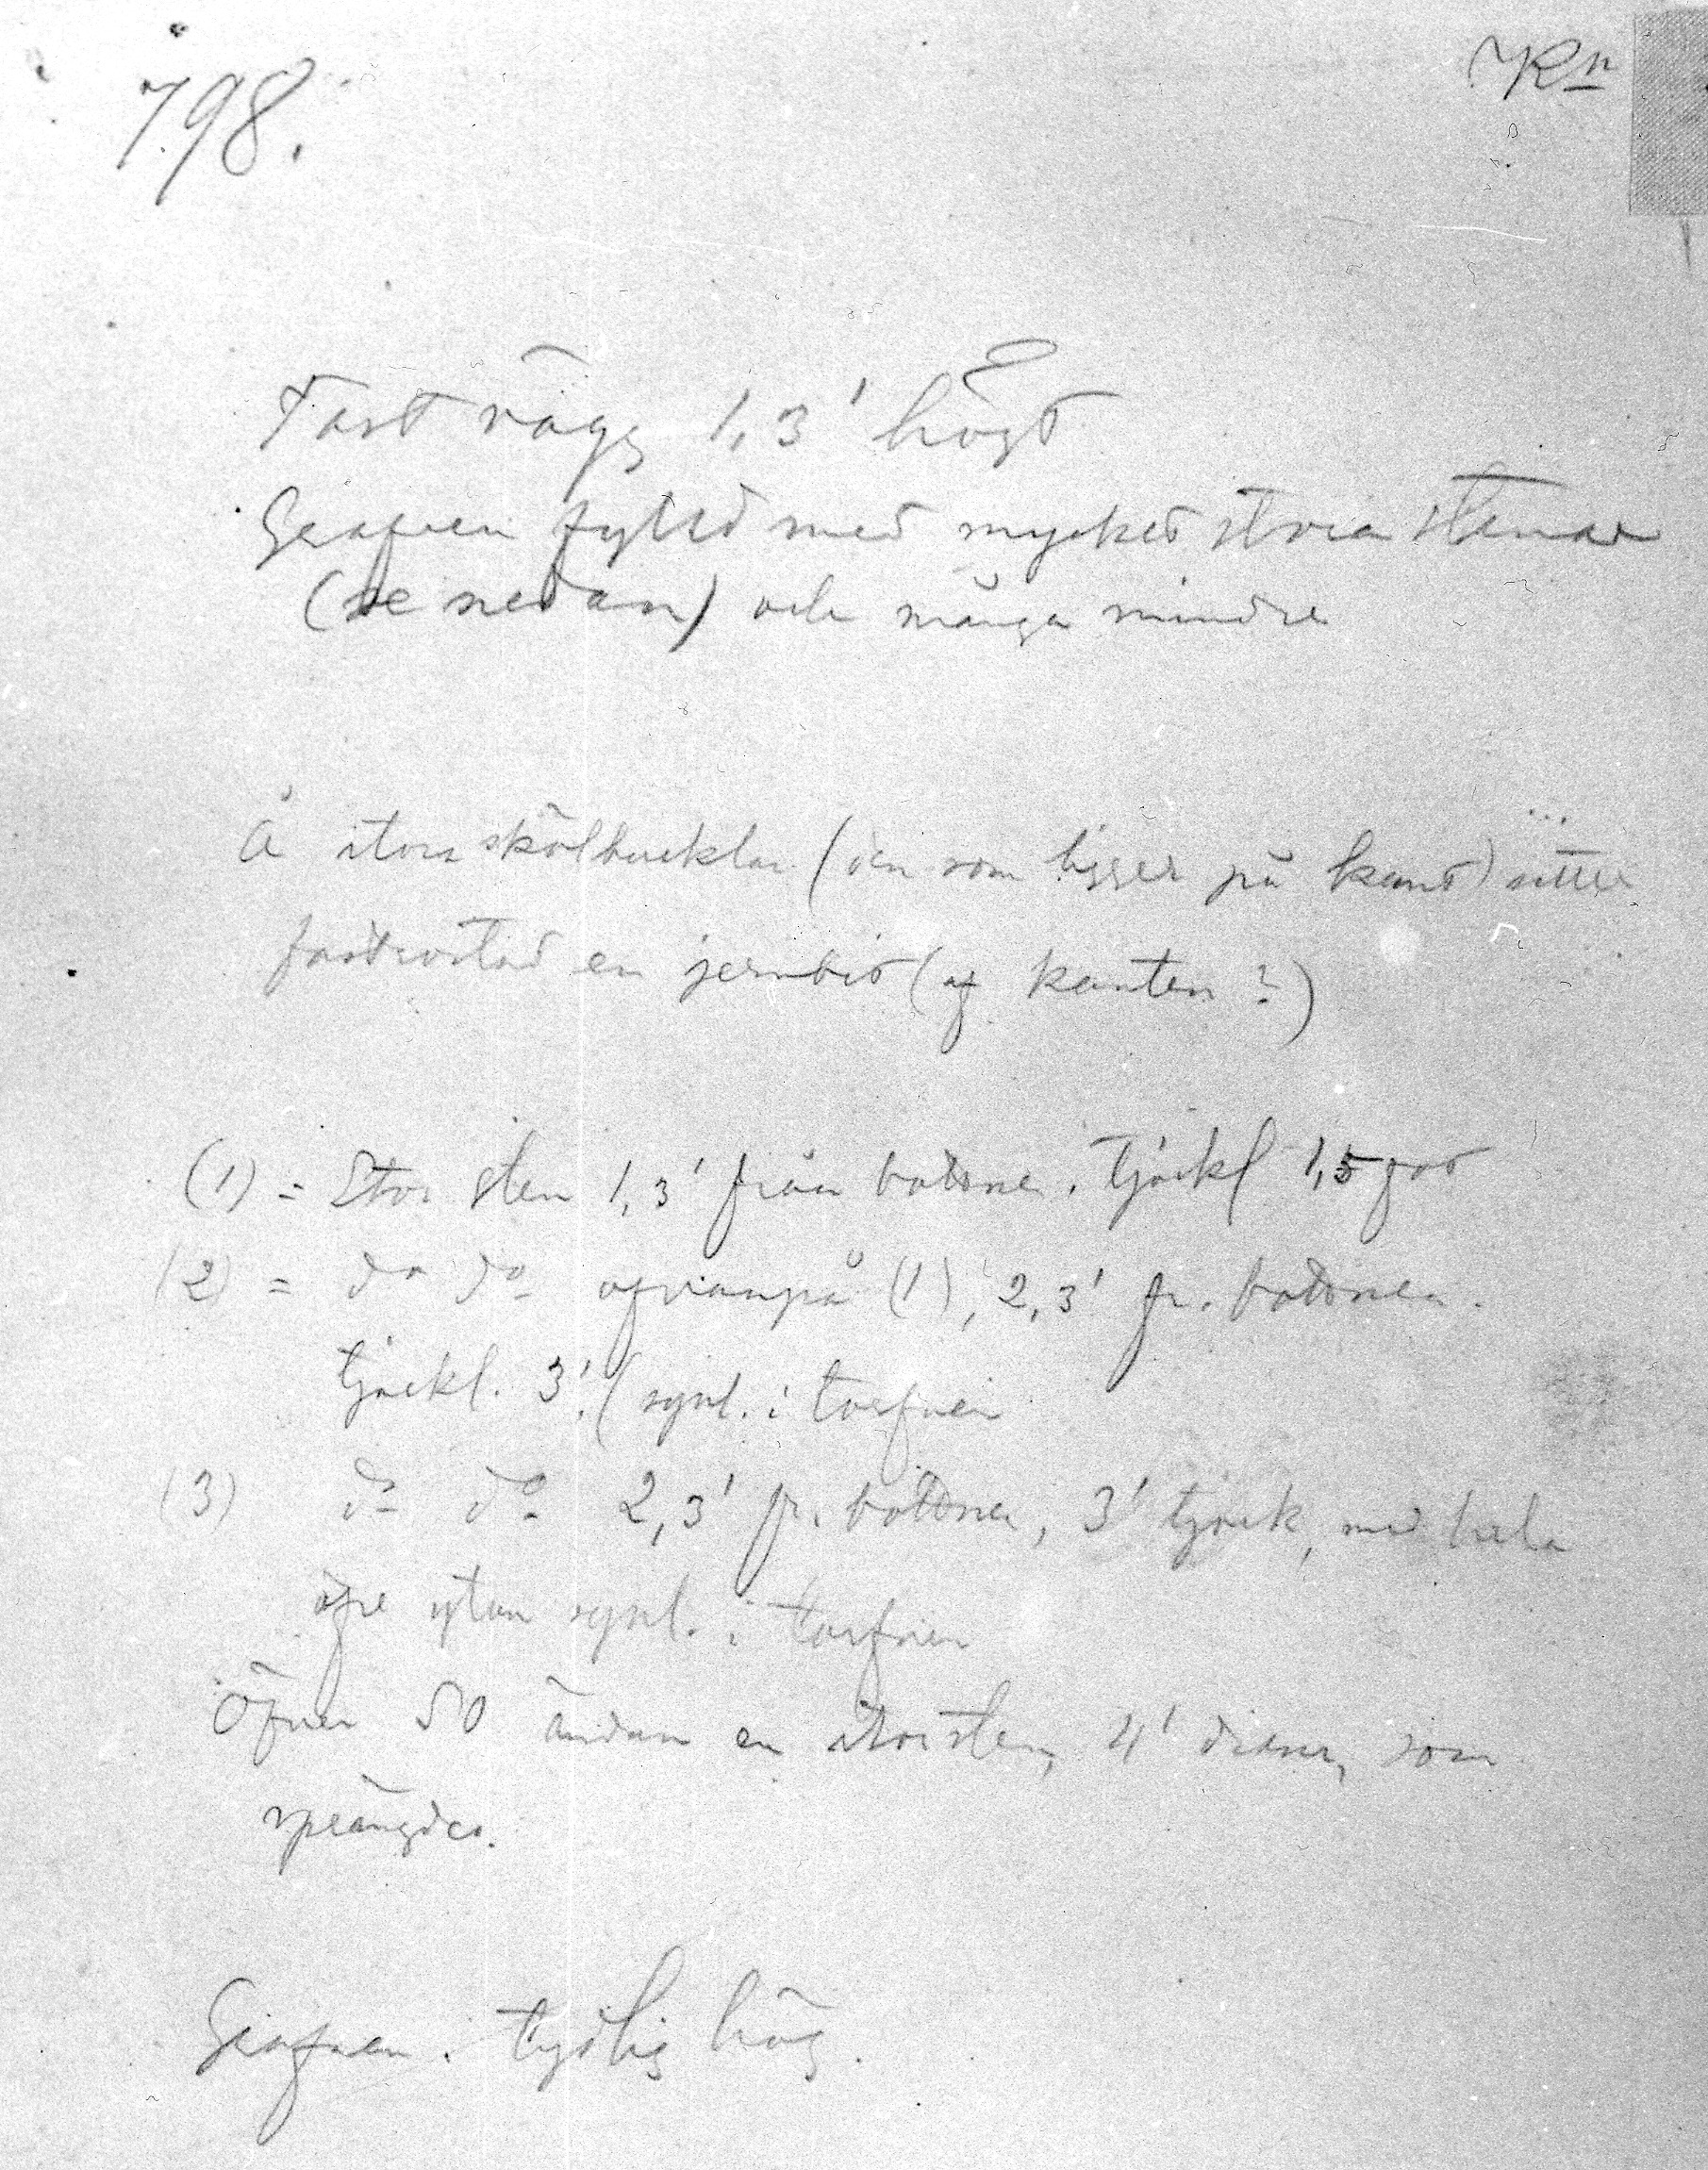 798. Kn
Fast vägg 1,3' högt
Grafven fylld med mycket stora stenar
(se nedan) och många mindre
Å stora sköldbucklan (den som ligger på kant) sitter
fastrostad en jernbit (af kanten?)
(1) = Stor sten 1,3' från bottnen. Tjockl 1,5 fot
(2) = do do ofvanpå (1), 2,3' fr. bottnen.
tjockl. 3'. (synl. i torfven
(3) do do 2,3' fr. bottnen, 3' tjock, med hela
öfre ytan synl. i torfven
Öfver SO ändan en stor sten, 4' diam, som
sprängdes.
Grafven i tydlig hög.